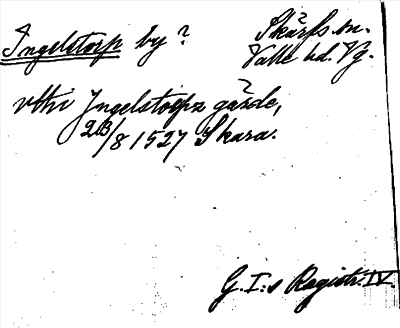 Ingelstorp by? Skärfs sn.
Valle hd. Vg.
vthi Ingelstorpa gärde,
23/8 1527 Skara.
G. I:s Registr. IV.